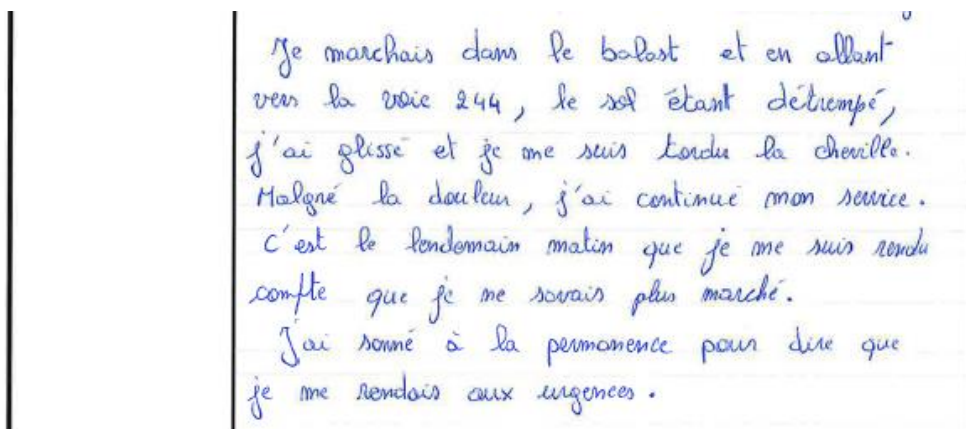 Je marchais dans le balast et en allant
vers la voie 244, le sol étant détrempé,
j'ai glissé et je me suis tordu la cheville.
Malgré la douleur, j'ai continué mon service.
C'est le lendemain matin que je me suis rendu
compte que je ne savais plus marché.
J'ai sonné à la permanence pour dire que
je me rendais aux urgences.